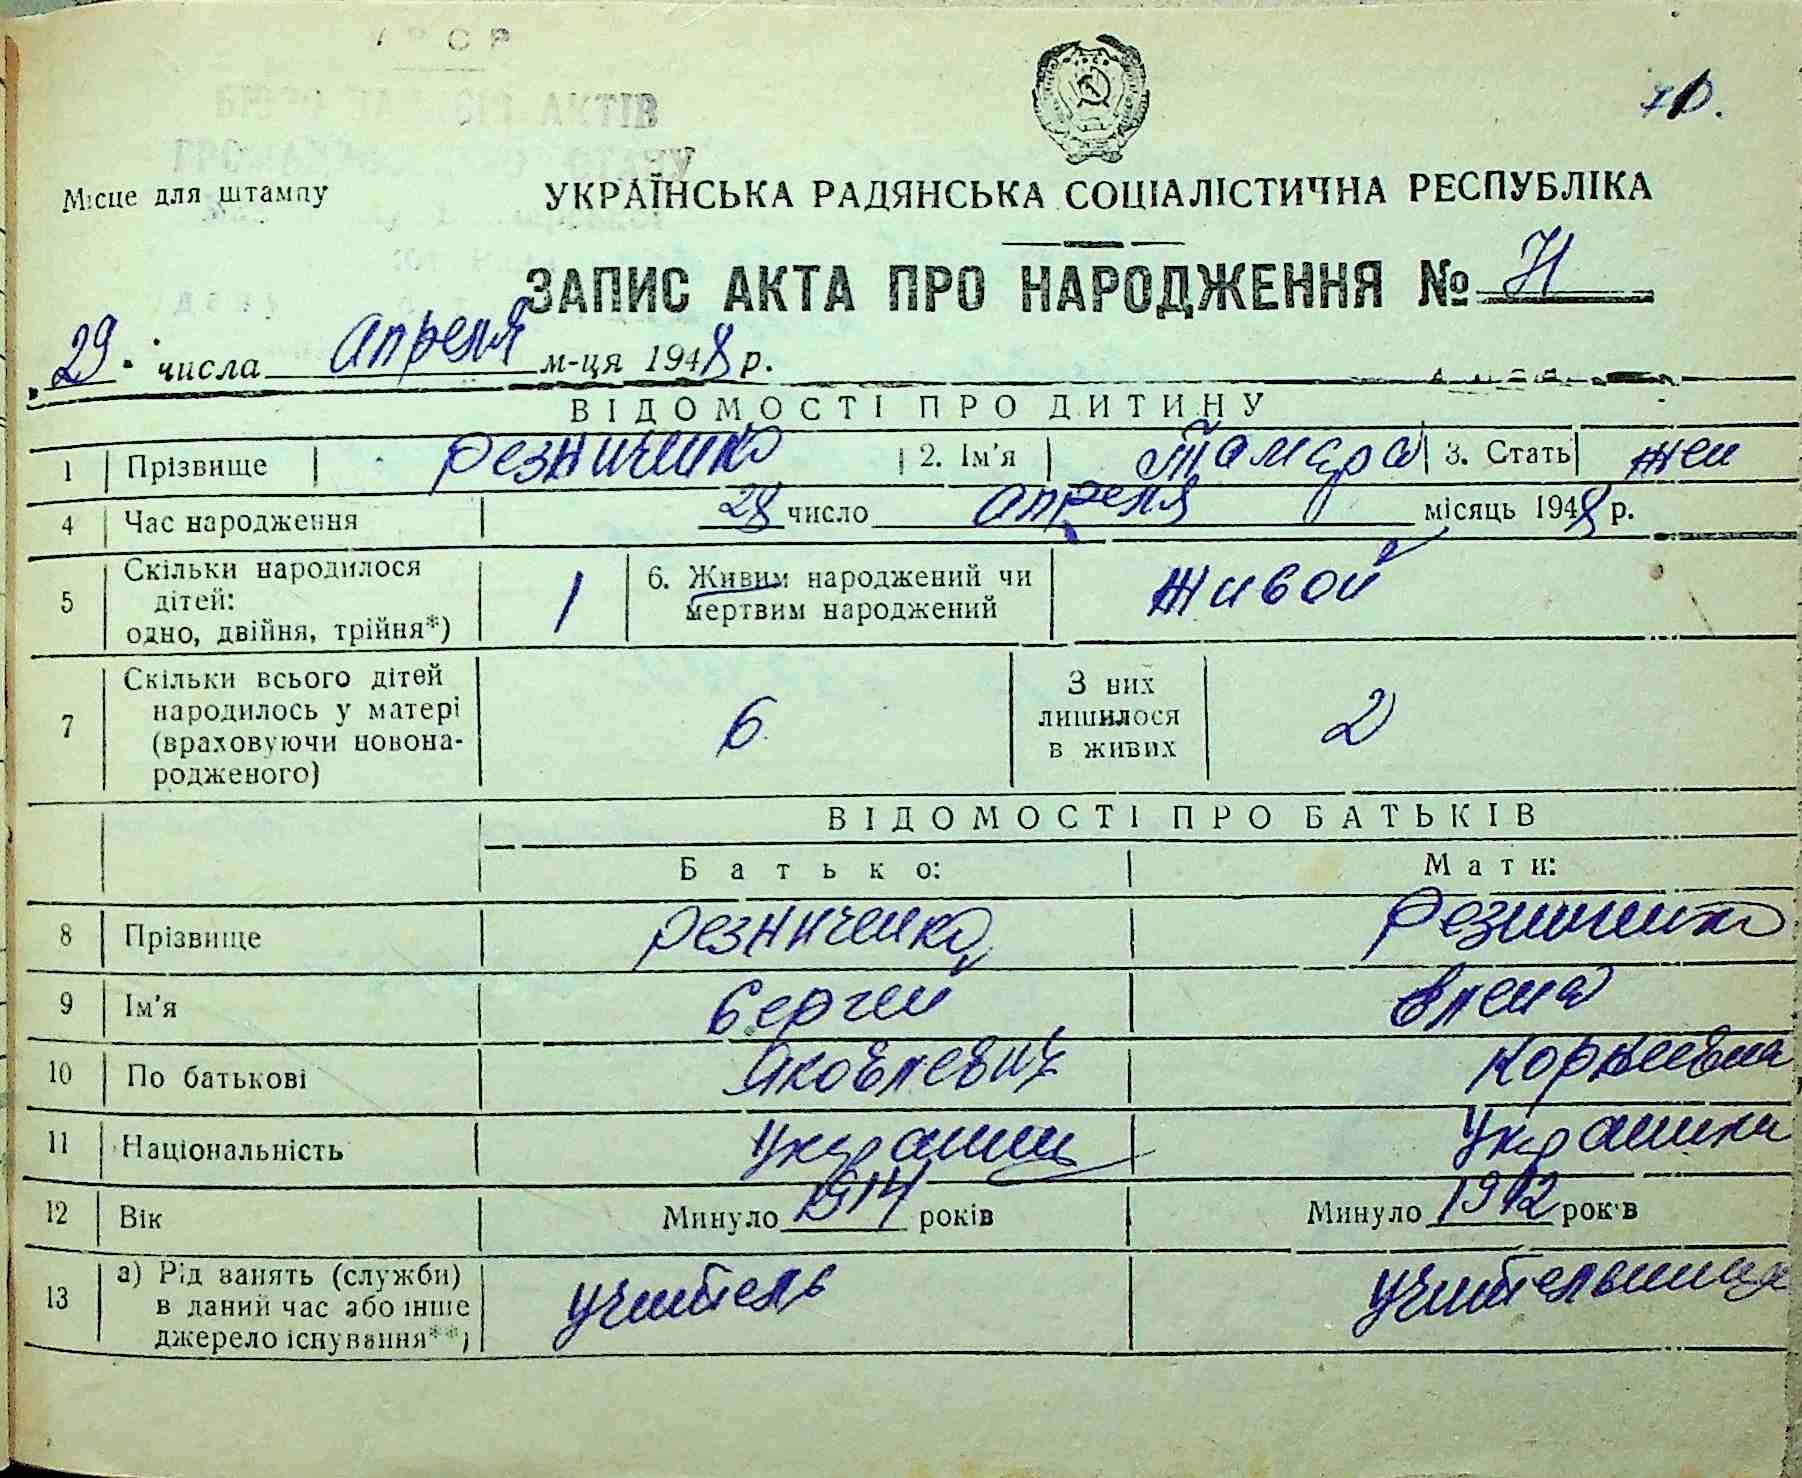 УРСР
БЮРО ЗАПИСІВ АКТІВ
ГРОМАДЯНСЬКОГО СТАНУ
Місце для штампу
УКРАЇНСЬКА РАДЯНСЬКА СОЦІАЛІСТИЧНА РЕСПУБЛІКА
ЗАПИС АКТА ПРО НАРОДЖЕННЯ № 71
29 числа апреля м-ця 1948 р.
ВІДОМОСТІ ПРО ДИТИНУ
1 Прізвище Резниченко 2. Ім'я Тамара 3. Стать жен
4 Час народження 28 число апреля місяць 1948 р.
5 Скільки народилося дітей: одно, двійня, трійня*) 1 6. Живим народжений чи мертвим народжений Живой
7 Скільки всього дітей народилось у матері (враховуючи новонародженого) 6 З них лишилося в живих 2
ВІДОМОСТІ ПРО БАТЬКІВ
Батько: Мати:
8 Прізвище Резниченко Резниченко
9 Ім'я Сергей Елена
10 По батькові Яковлевич Корнеевна
11 Національність Украинец Украинка
12 Вік Минуло 1914 років Минуло 1912 років
13 а) Рід занять (служби) в даний час або інше джерело існування**) учитель учительница